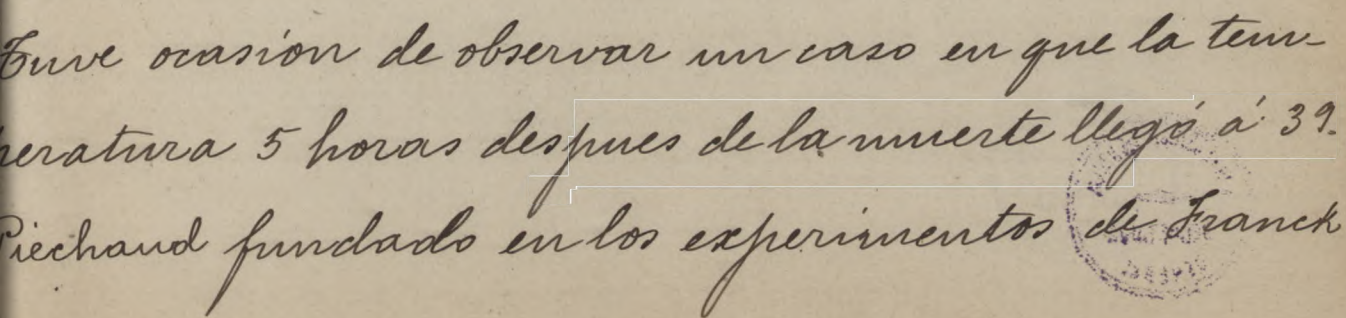 Tuve ocasion de observar un caso en que la tem-
peratura 5 horas despues de la muerte llegó á 39.
Piechaud fundado en los experimentos de Franck